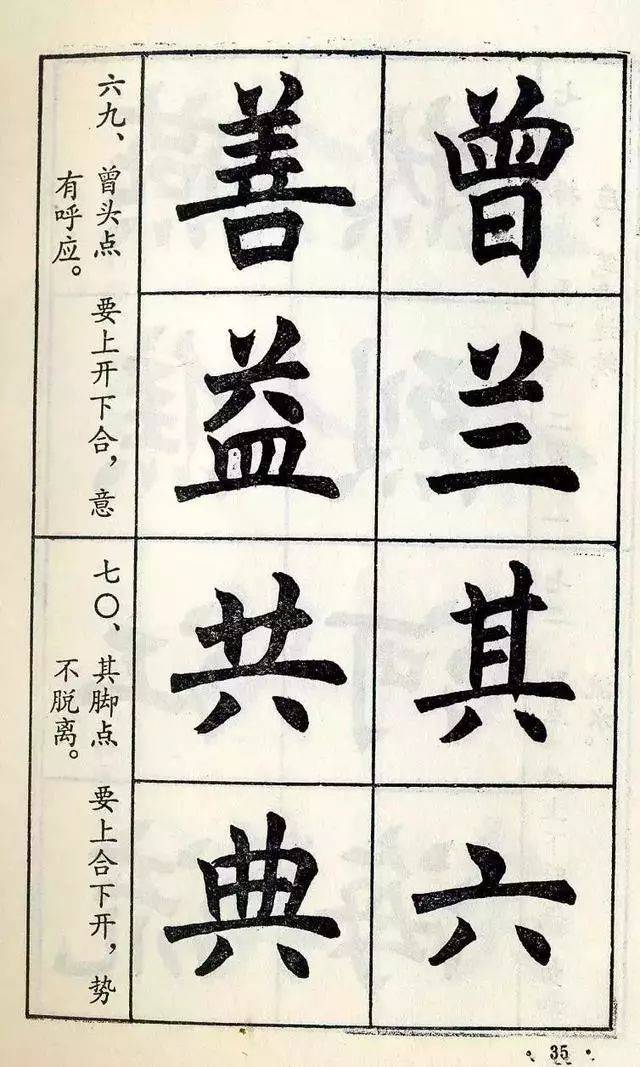 曾
兰
善
益
六九、曾头点 要上开下合，意
有呼应。
其
六
共
典
七〇、其脚点 要上合下开，势
不脱离。
35